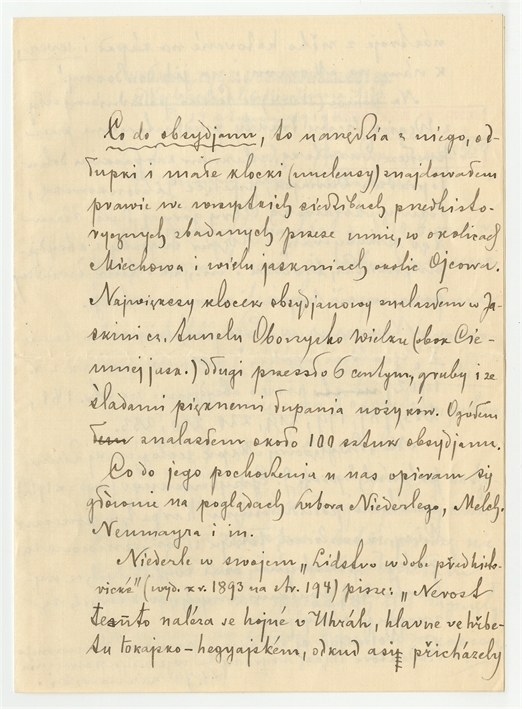 Co do obsydjanu, to narzędzia z niego, od-
łupki i małe klocki (nucleusy) znajdowałem
prawie we wszystkich siedzibach przedhisto-
rycznych zbadanych przeze mnie, w okolicach
Miechowa i wielu jaskiniach okolic Ojcowa.
Największy klocek obsydjanowy znalazłem w Ja-
skini cz. Tunelu Oborzysko Wielkie (obok Cie-
mnej jask.) długi przeszło 6 centym, gruby i ze
śladami pięknemi łupania nożyków. Ogółem
znalazłem około 100 sztuk obsydjanu.
Co do jego pochodzenia u nas opieram się
głównie na poglądach Lubora Niederlego, Melch.
Neumayra i in.
Niederle w swojem „Lidstvo v době předhisto-
rické" (wyd. z r. 1893 na str. 194) pisze: „Nerost
tento naléza se hojné v Uhrách, hlavne ve hřbe-
tu tokajsko-hegyajském, odkud asi přicházely